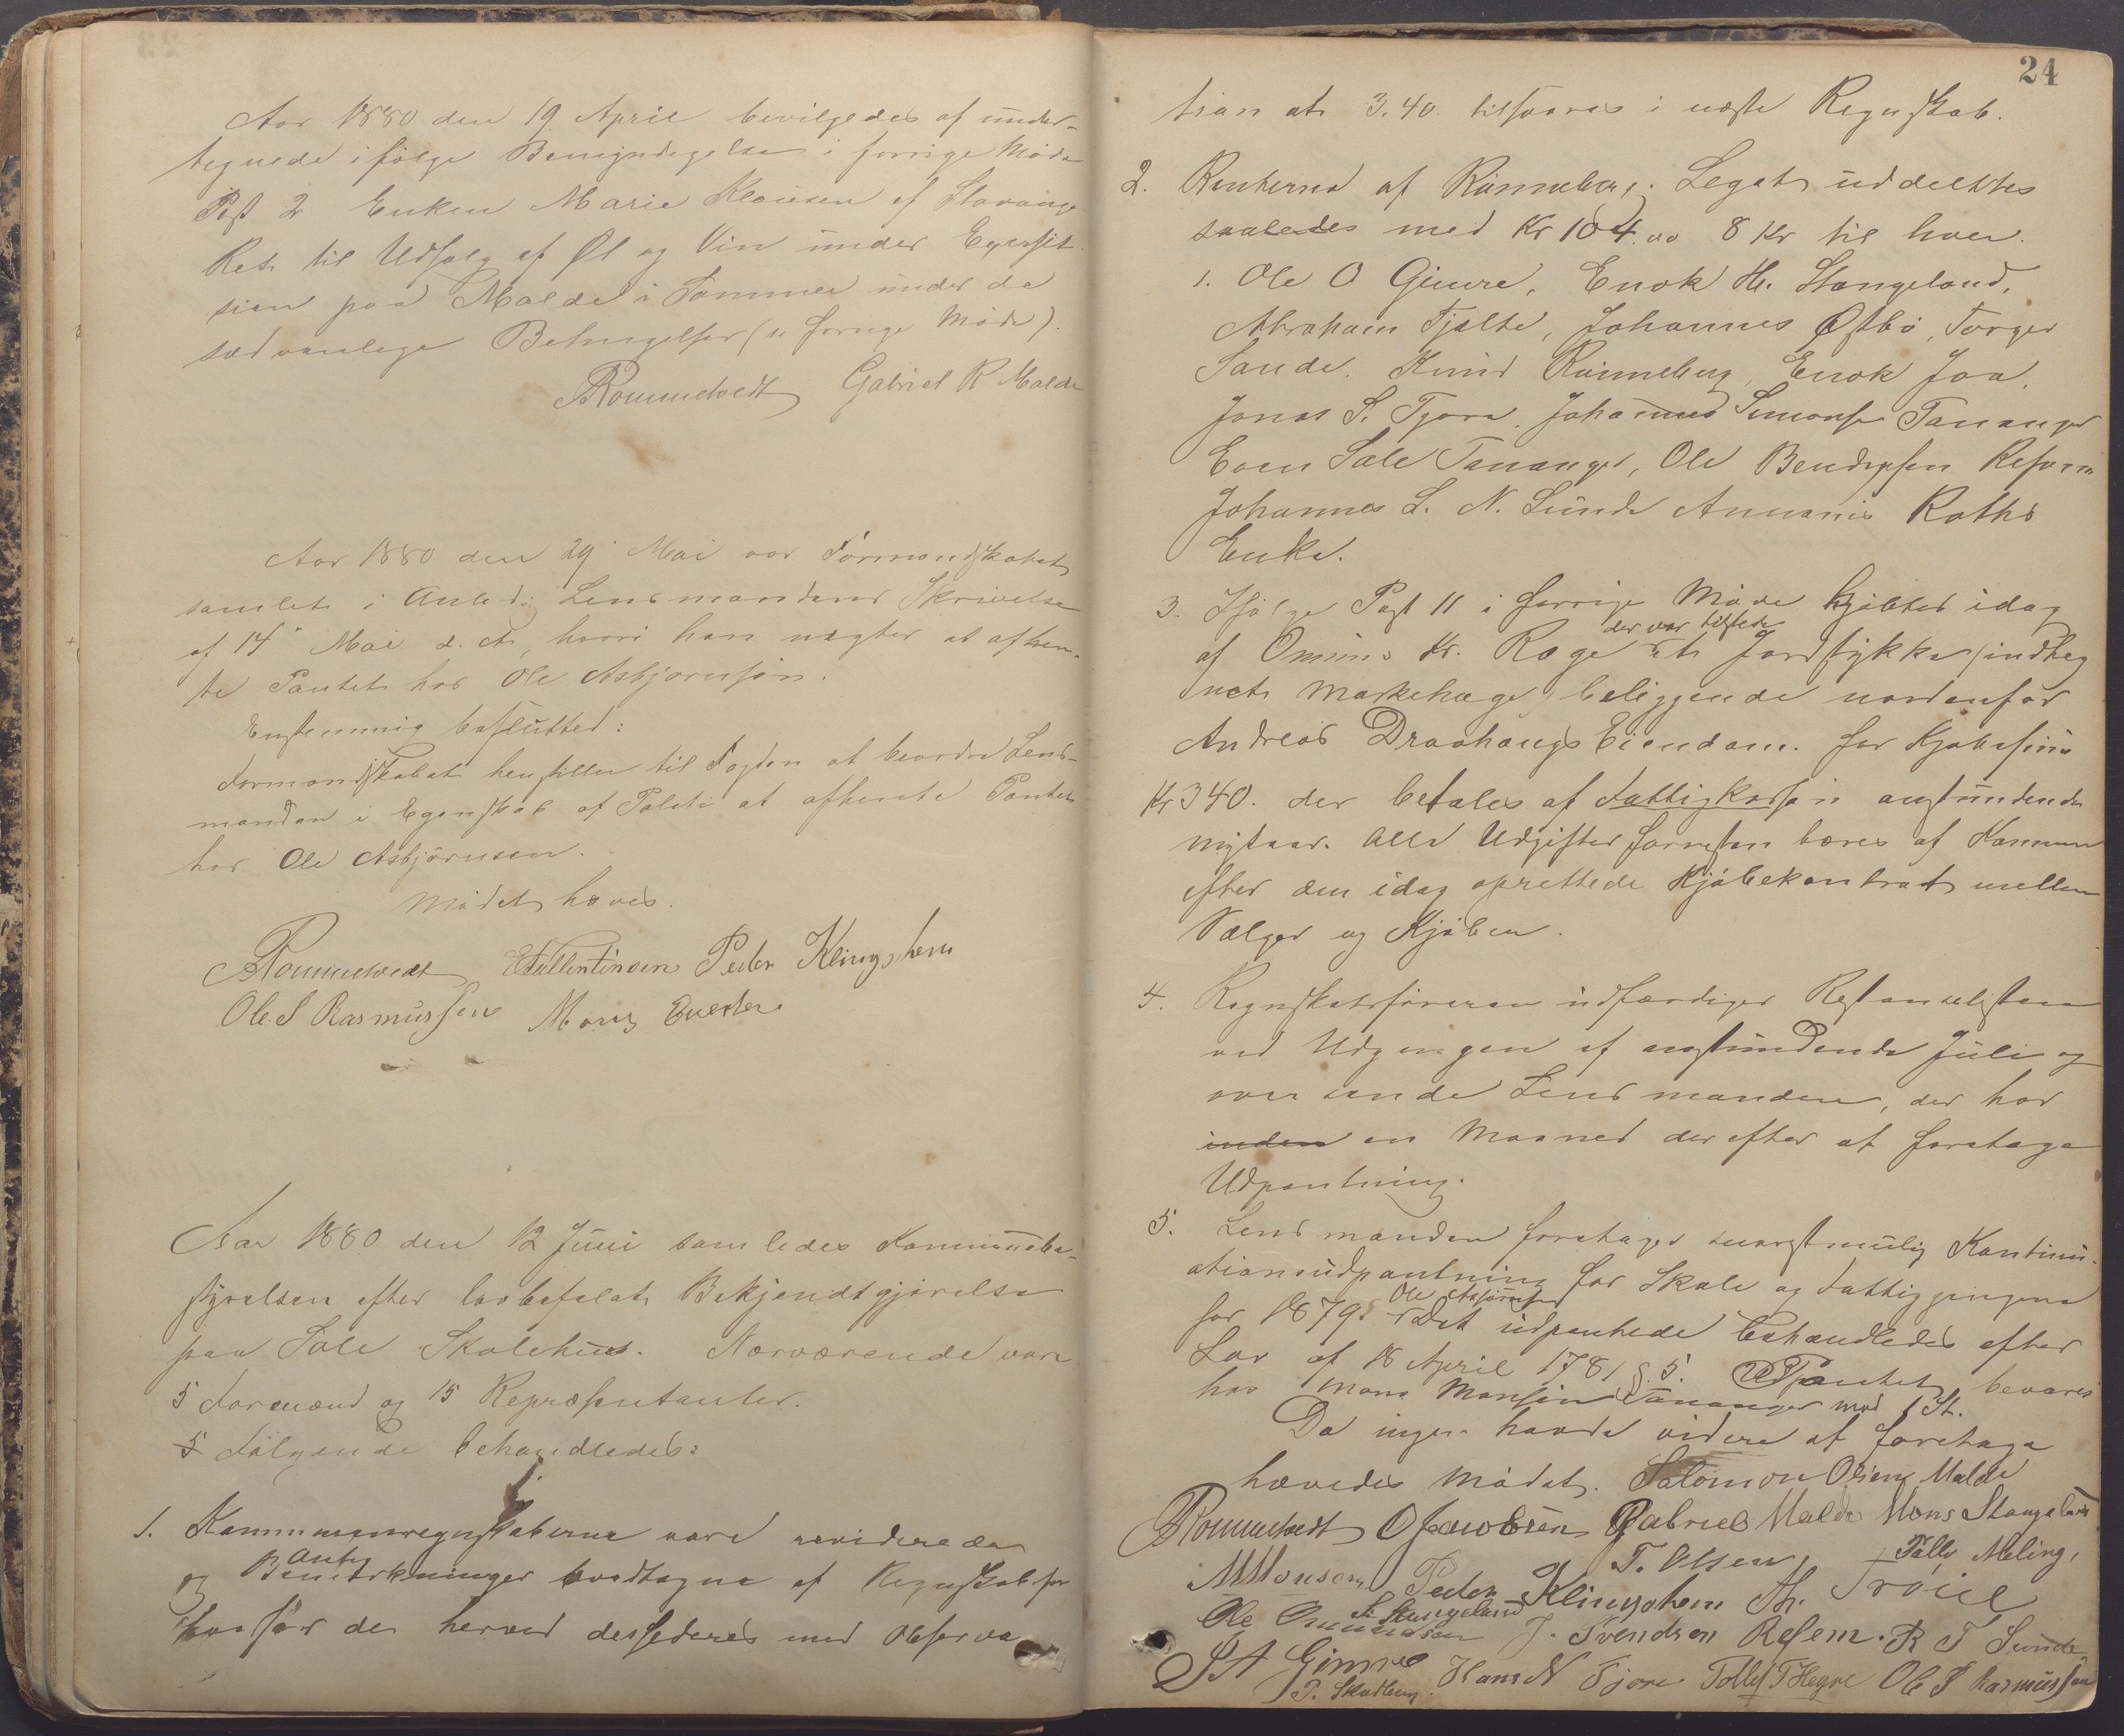 Aar 1880 den 19 April bevilgedes af under-
tegnede ifølge Bemyndigelse i forrige Møde
Post 2 Enken Marie Klausen af Stavanger
Ret til Udsalg af Øl og Vin under Exersit
sien paa Malde i Sommer under de
sædvanlige Betingelser (se forrige Møde).
Rommetvedt Gabriel R Malde
Aar 1880 den 29 Mai var Formandskabet
samlet i Anled. Lensmandens Skrivelse
af 14 Mai d. A, hvori han nægter at afhen-
te Pantet hos Ole Asbjørnsøn.
Enstemmig beslutted:
Formandskabet henstiller til Fogden at beordre Lens-
manden i Egenskab af Politi at afhente Pantet
hos Ole Asbjörnsen.
Mödet hæves.
Rommetvedt E Tallentinsen Peder Klingsheim
Ole. S Rasmussen Mons
Aar 1880 den 12 Juni samledes Kommunebe-
styrelsen efter lovbefalet Bekjendtgjørelse
paa Sole Skolehus. Nærværende vare
5 Formænd og 15 Repræsentanter.
5 Følgende behandledes:
1. Kommuneregnskaberne vare reviderede
og Bemærkninger modtagne af Regnskabsfø
for de herved desideres med Observa
24
tion at 3.40 tilføres i næste Regnskab.
2. Renterne af Rönneberg. Legat uddeltes
saaledes med Kr 104.00 8 Kr til hver.
1. Ole O Gimre, Enok H. Stangeland,
Abraham Tjelte, Johannes Østbö, Torger
Sande. Knud Rönneberg, Enok Joa.
Jonas S. Tjora. Johannes Simonsen Tananger
Even Sole Tananger, Ole Bendixsen Risnes
Johannes L. N. Sunde Annanis Roths
Enke.
3. Ifølge Post 11 i forrige Möde kjöbtes idag
der var tilstede
af Omund Kr. Roge et Jordstykke (indheg
net Markehage) beliggende nordenfor
Andreas Draahougs Eiendom. for Kjøbesum
Kr 340. der betales af Fattigkassen i anstundende
nytaar. Alle Udgifter forresten bæres af Kommun
efter den idag oprettede Kjöbekontrakt mellem
Sælger og Kjöber.
4. Regnskabsføreren udfærdiger Restanselisten
ved Udgangen af anstundende Juli og
oversende Lensmanden, der har
inden en Maaned derefter at foretage
Udpantning.
5. Lensmanden foretager snarestmulig Kontinu-
ationsudpantning for Skole og Fattigpengene
Ole Asbjörnsen
for 1879. Det udpantede behandledes efter
Lov af 18 April 1781 §. 5. Pantet bevares
hos Mons Monsön Tananger mod 1 St.
Da ingen havde videre at foretage
hævedes Mödet. Salomon Olsen Malde
Rommetvedt O Jacobsen Gabriel Malde Mons Stangeland
M Monsen Peder Klingsheim T. Olsen Tollef Meling,
Th. Tröiel
Ole Omundsen S. Stangeland J. Svendsen Resem. R T Sunde
S A Gimre Hans N Tjora Tollef T Hegre Ole S Rasmussen
P. Skadberg.